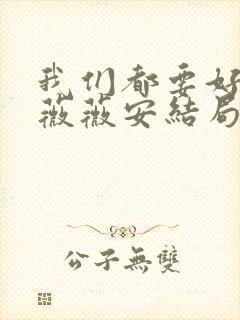 我们都要好
薇薇安结局
公子無雙